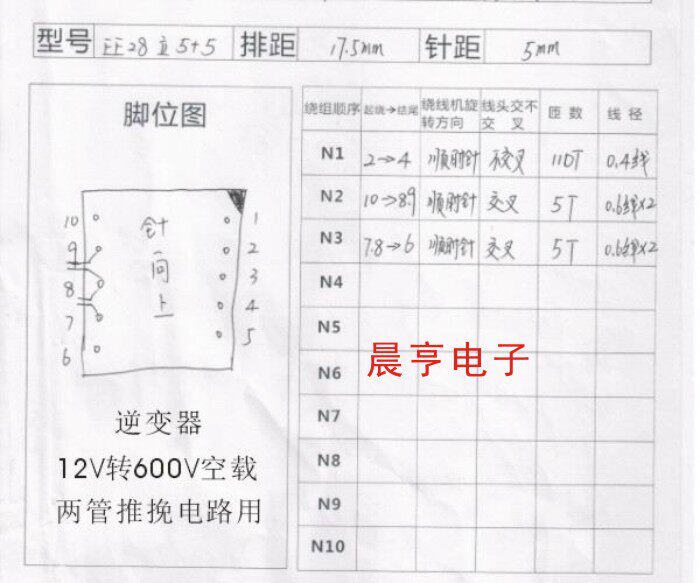 型号 EE28立5+5 排距 17.5mm 针距 5mm
脚位图
10 1
9 2
8 3
7 4
6 5
针
向
上
逆变器
12V转600V空载
两管推挽电路用
绕组顺序 起绕→结尾 绕线机旋转方向 线头交不交叉 匝数 线径
N1 2→4 顺时针 不交叉 110T 0.4线
N2 10→8.9 顺时针 交叉 5T 0.6线×2
N3 7.8→6 顺时针 交叉 5T 0.6线×2
N4
N5
晨亨电子
N6
N7
N8
N9
N10